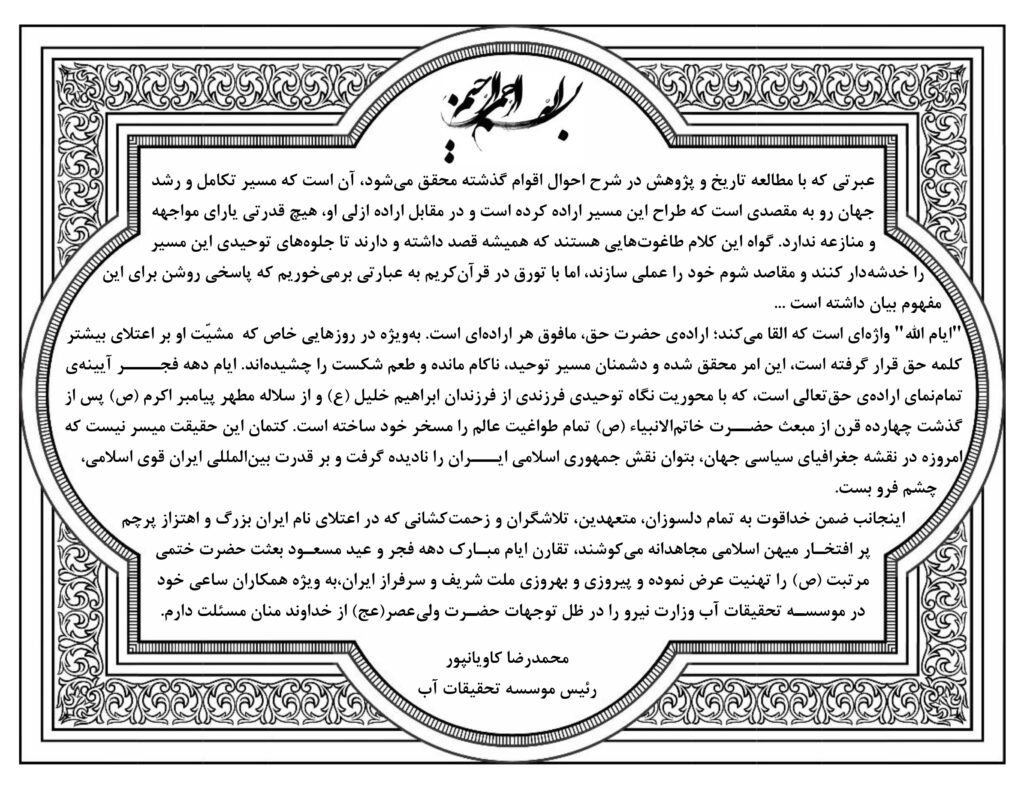 بسم الله الرحمن الرحیم
عبرتی که با مطالعه تاریخ و پژوهش در شرح احوال اقوام گذشته محقق می‌شود، آن است که مسیر تکامل و رشد
جهان رو به مقصدی است که طراح این مسیر اراده کرده است و در مقابل اراده ازلی او، هیچ قدرتی یارای مواجهه
و منازعه ندارد. گواه این کلام طاغوت‌هایی هستند که همیشه قصد داشته و دارند تا جلوه‌های توحیدی این مسیر
را خدشه‌دار کنند و مقاصد شوم خود را عملی سازند، اما با تورق در قرآن‌کریم به عبارتی برمی‌خوریم که پاسخی روشن برای این
مفهوم بیان داشته است ...
"ایام الله" واژه‌ای است که القا می‌کند؛ اراده‌ی حضرت حق، مافوق هر اراده‌ای است. به‌ویژه در روزهایی خاص که مشیّت او بر اعتلای بیشتر
کلمه حق قرار گرفته است، این امر محقق شده و دشمنان مسیر توحید، ناکام مانده و طعم شکست را چشیده‌اند. ایام دهه فجـــــر آیینه‌ی
تمام‌نمای اراده‌ی حق‌تعالی است، که با محوریت نگاه توحیدی فرزندی از فرزندان ابراهیم خلیل (ع) و از سلاله مطهر پیامبر اکرم (ص) پس از
گذشت چهارده قرن از مبعث حضـــرت خاتم‌الانبیاء (ص) تمام طواغیت عالم را مسخر خود ساخته است. کتمان این حقیقت میسر نیست که
امروزه در نقشه جغرافیای سیاسی جهان، بتوان نقش جمهوری اسلامی ایـــــران را نادیده گرفت و بر قدرت بین‌المللی ایران قوی اسلامی،
چشم فرو بست.
اینجانب ضمن خداقوت به تمام دلسوزان، متعهدین، تلاشگران و زحمت‌کشانی که در اعتلای نام ایران بزرگ و اهتزاز پرچم
پر افتخـار میهن اسلامی مجاهدانه می‌کوشند، تقارن ایام مبـارک دهه فجر و عید مسعـود بعثت حضرت ختمی
مرتبت (ص) را تهنیت عرض نموده و پیروزی و بهروزی ملت شریف و سرفراز ایران،به ویژه همکاران ساعی خود
در موسســه تحقیقات آب وزارت نیرو را در ظل توجهات حضــرت ولی‌عصر(عج) از خداوند منان مسئلت دارم.
محمدرضا کاویانپور
رئیس موسسه تحقیقات آب